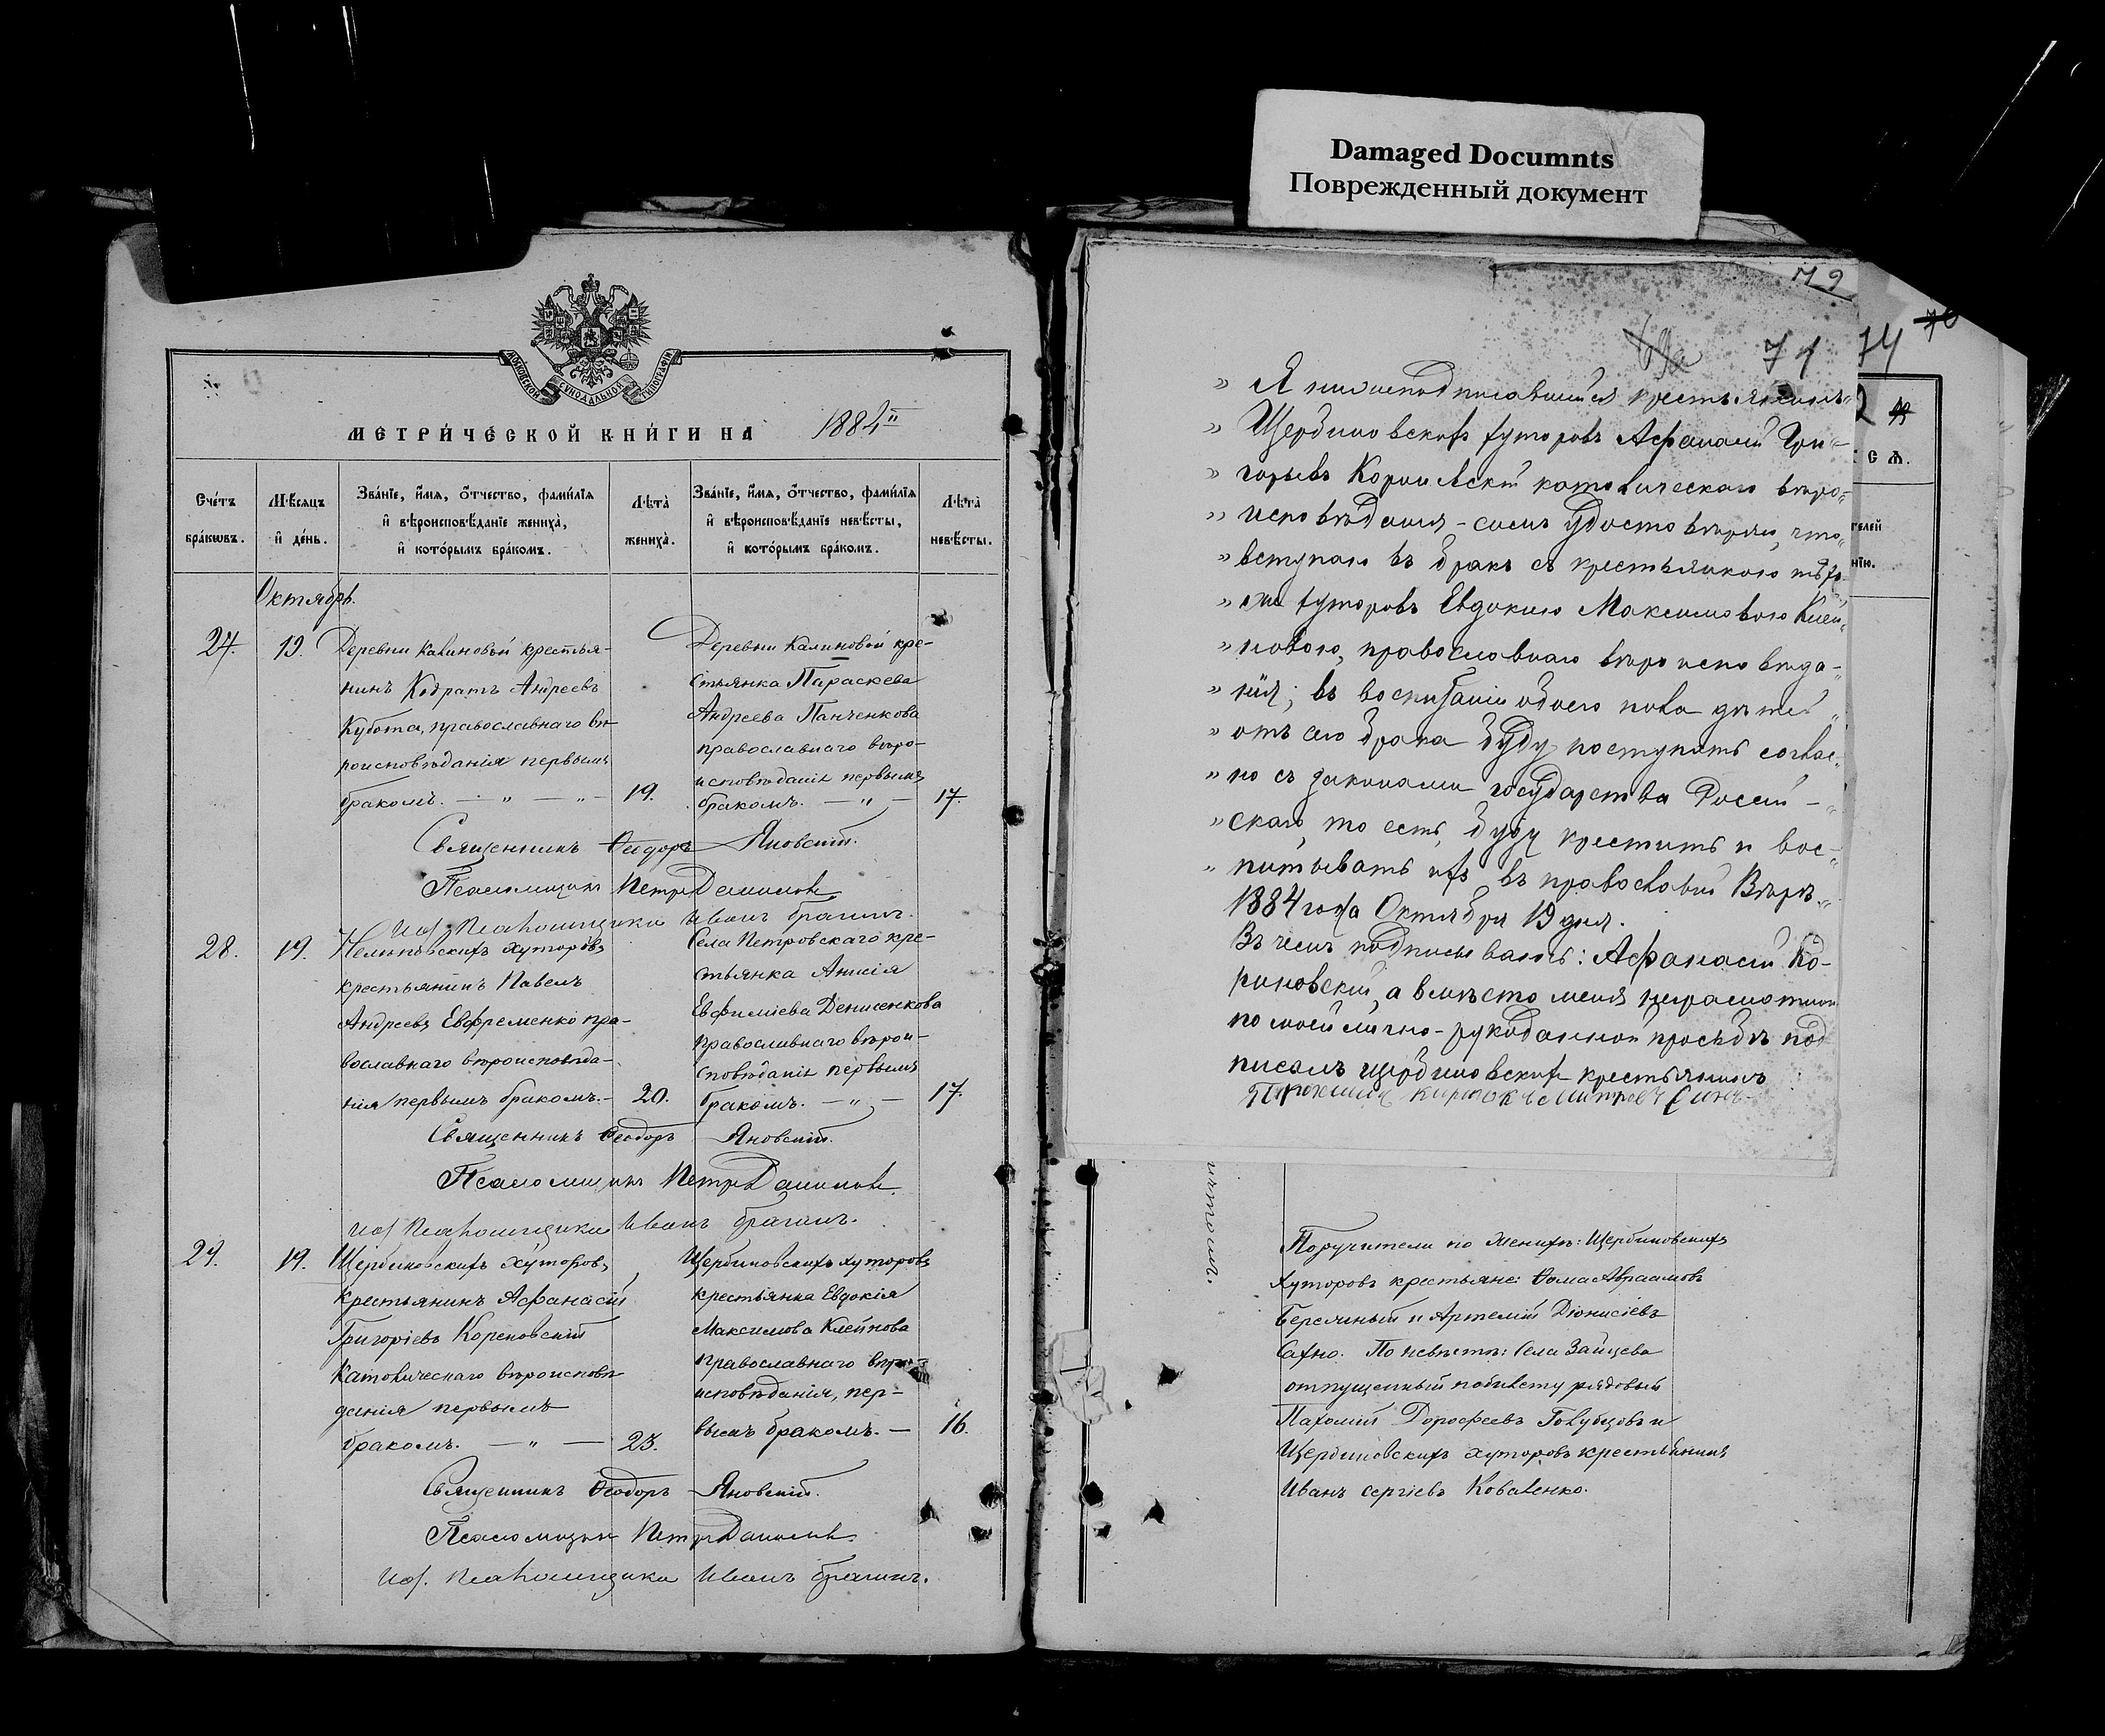 Damaged Documnts
Поврежденный документ
МОСКОВСКОЙ СѴНОДАЛЬНОЙ ТИПОГРАФІИ
МЕТРИ́ЧЕСКОЙ КНИ́ГИ НА 1884
Сче́тъ бра́кωвъ.
Мѣ́сяцъ и҆ де́нь.
Зва́нїе, и҆́мя, ѻ҆́тчество, фами́лїя и҆ вѣроисповѣ́данїе жениха̀, и҆ кото́рымъ бра́комъ.
Лѣ́та жениха̀.
Зва́нїе, и҆́мя, ѻ҆́тчество, фами́лїя и҆ вѣроисповѣ́данїе невѣ́сты, и҆ кото́рымъ бра́комъ.
Лѣ́та невѣ́сты.
Октябрь.
27. 19. Деревни Калиновой крестья-
нинъ Кодратъ Андреевъ
Кубота, православнаго вѣ-
роисповѣданія первымъ
бракомъ. — „ — „ — 19.
Деревни Калиновой кре-
стьянка Параскева
Андреева Панченкова
православнаго вѣро-
исповѣданія первымъ
бракомъ. — „ — 17.
Священникъ Ѳеодоръ Яновскій.
Псаломщикъ Петръ Данилов
Иод. Псаломщика Иванъ Брагинъ.
28. 19. Нелѣповскихъ хуторовъ
крестьянинъ Павелъ
Андреевъ Евфременко пра-
вославнаго вѣроисповѣда-
нія первымъ бракомъ.— 20.
Села Петровскаго кре-
стьянка Анисія
Евфиміева Денисенкова
православнаго вѣрои-
сповѣданія первымъ
бракомъ. — „ — 17.
Священникъ Ѳеодоръ Яновскій.
Псаломщикъ Петръ Данилов
Иод. Псаломщика Иванъ Брагинъ.
29. 19. Щербиновскихъ хуторовъ
крестьянинъ Афанасій
Григоріевъ Кореновскій
католическаго вѣроисповѣ-
данія первымъ
бракомъ. — „ — 23.
Щербиновскихъ хуторовъ
крестьянка Евдокія
Максимова Клейнова
православнаго вѣро-
исповѣданія, пер-
вымъ бракомъ. — 16.
Священникъ Ѳеодоръ Яновскій.
Псаломщикъ Петръ Данилов
Иод. Псаломщика Иванъ Брагинъ.
79
71 74
с ѧ.
телей
нїю.
„ Я нижеподписавшийся крестьянинъ „
„ Щербиновскихъ хуторовъ Афанасій Гри-
„ горьевъ Корновскій католическаго вѣро-
„ исповѣданія - симъ удостовѣряю, что „
„ вступаю въ бракъ съ крестьянкою тѣхъ
„ же хуторовъ Евдокиею Максимовою Клей-
„ новою, православнаго вѣроисповѣда-
„ нія; въ воспитаніи обоего пола дѣтей
„ отъ сего брака буду поступать соглас-
„ но съ законами государства Россій-
„ скаго, то есть, буду крестить и вос-
„ питывать ихъ въ православной Вѣрѣ.
1884 года Октября 19 дня.
Въ чемъ подписываюсь: Афанасій Ко-
риновскій, а вмѣсто меня неграмотнаго
по моей лично-рукоданной просьбѣ под
писалъ щербиновскихъ крестьянинъ
Поручители по женихѣ: Щербиновскихъ
хуторовъ крестьяне: Ѳома Авраамовъ
Бересяный и Артемій Діонисіевъ
Сахно. По невѣстѣ: Села Зайцева
отпущенный по билету рядовый
Пахомій Дорофеевъ Голубцовъ и
Щербиновскихъ хуторовъ крестьянинъ
Иванъ Сергіевъ Коваленко.